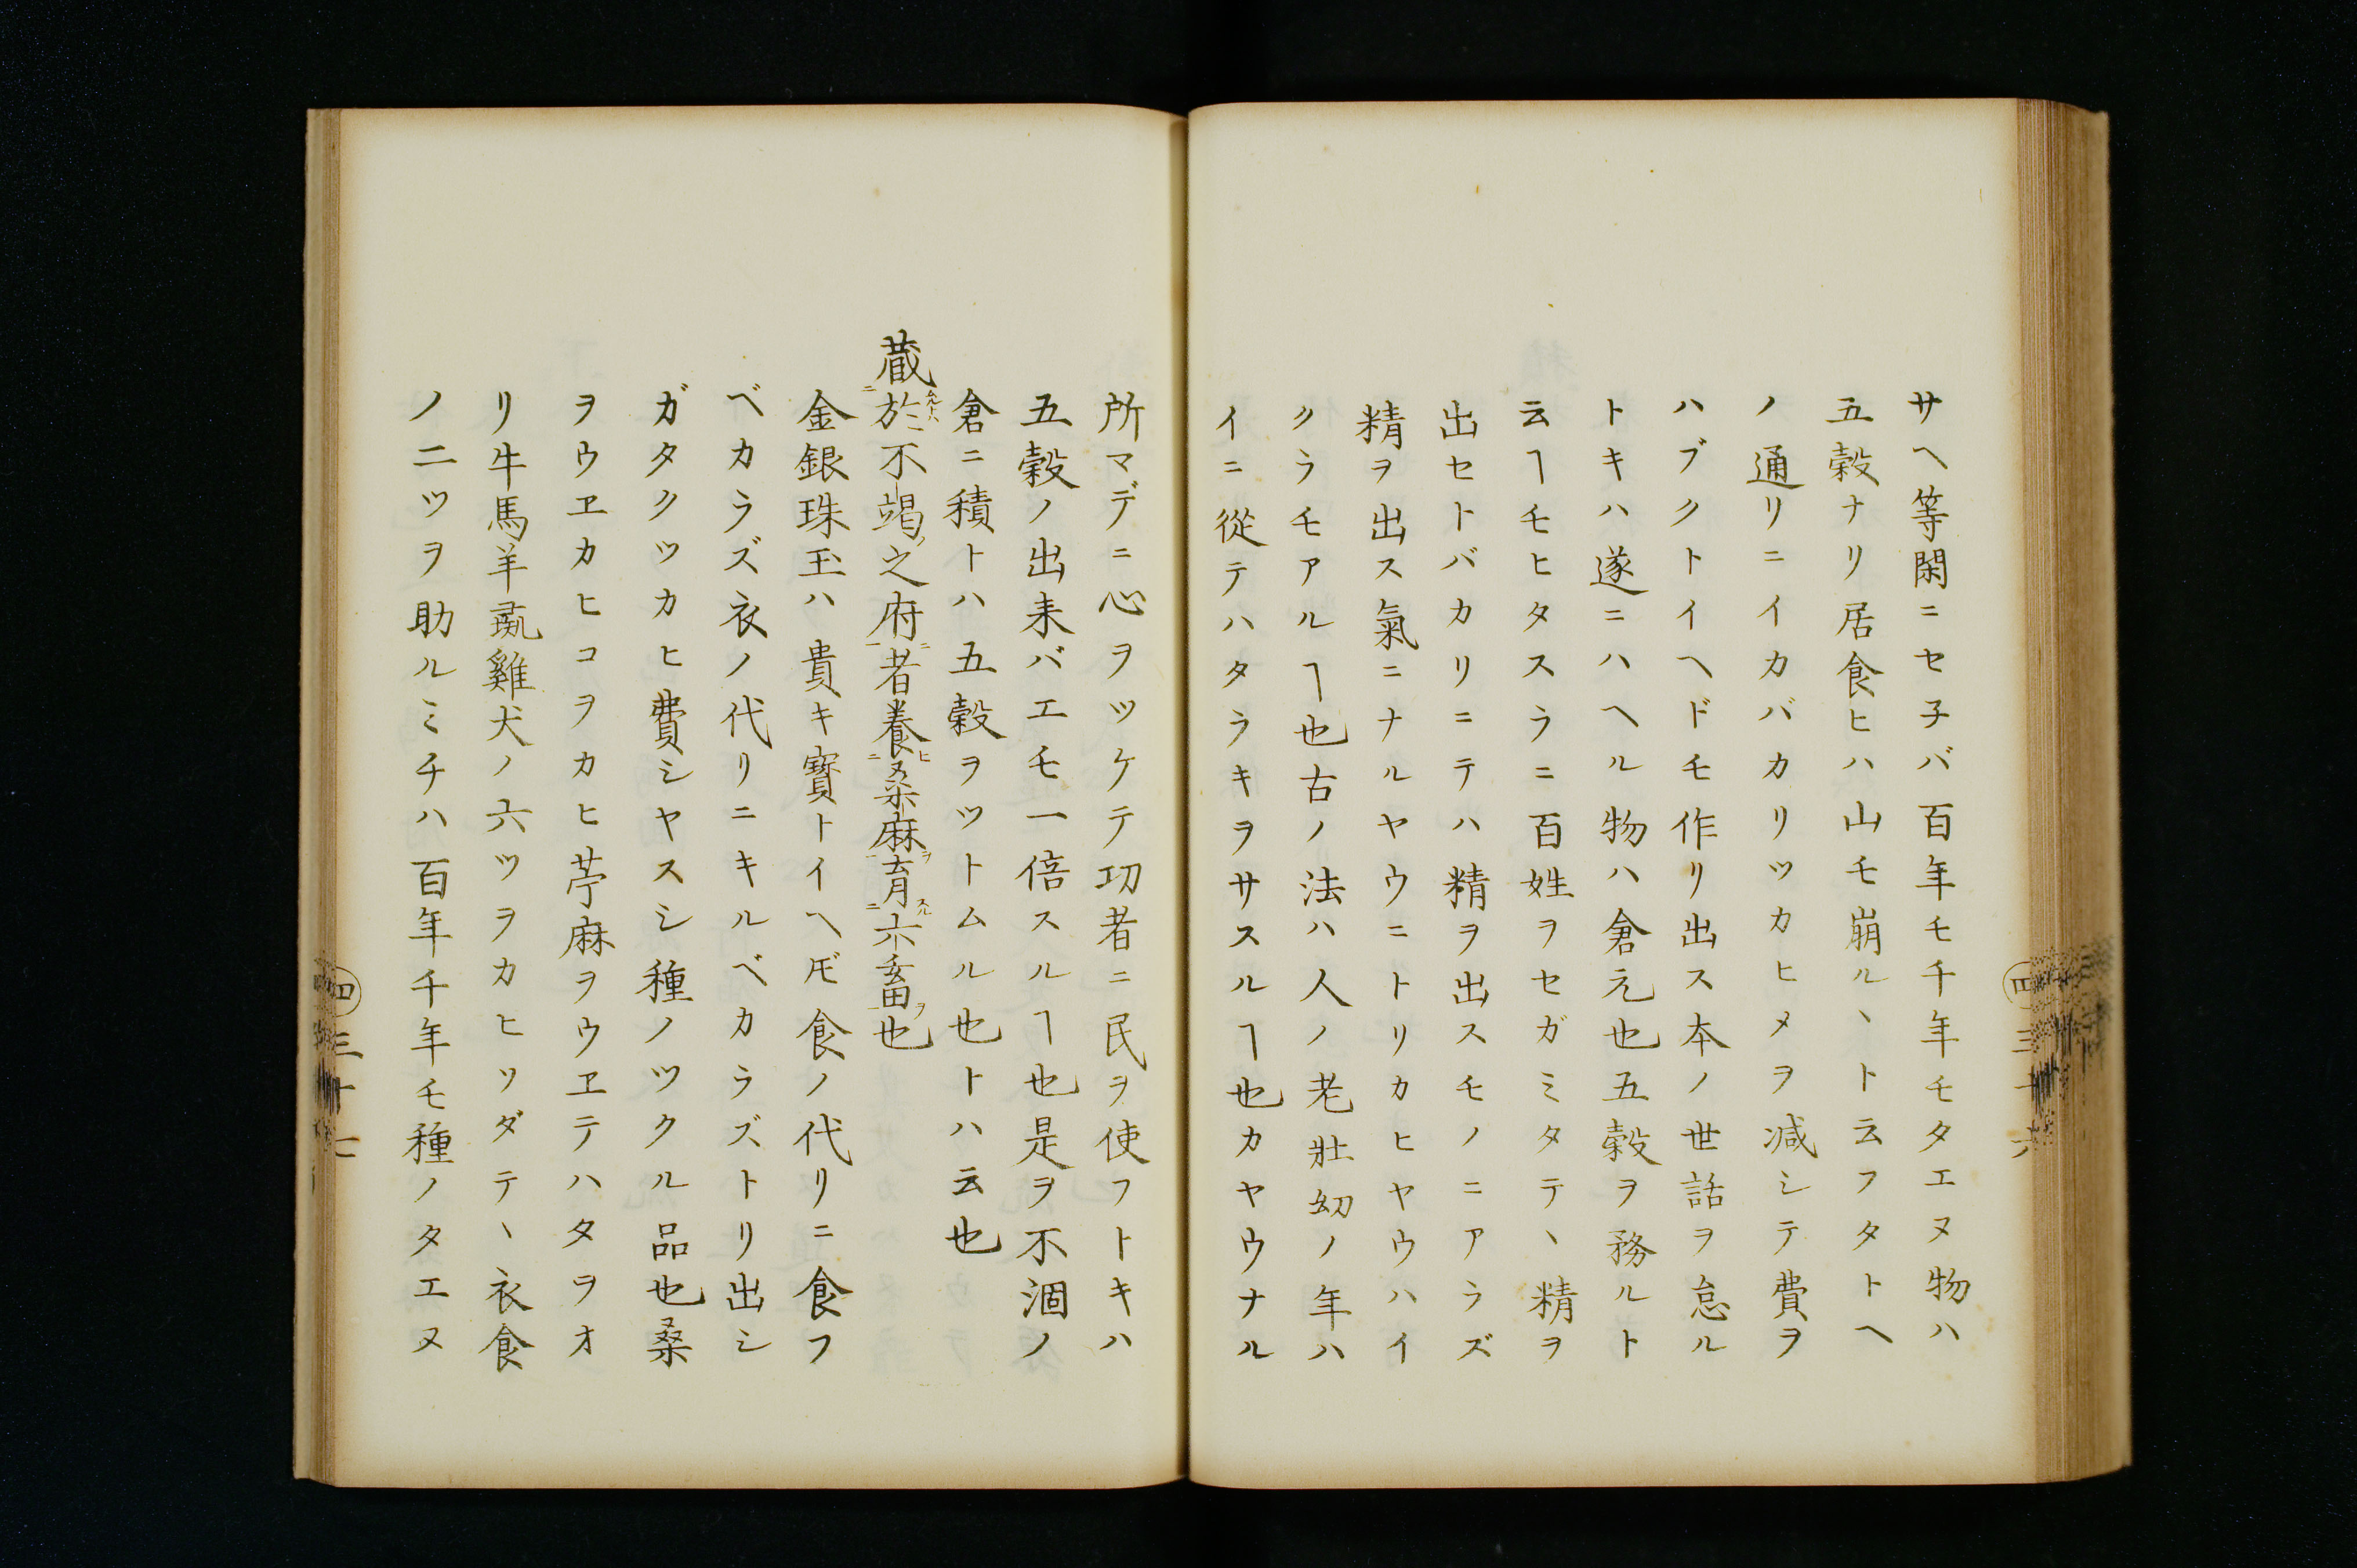 サヘ等閑ニセ子バ百年モ千年モタエヌ物ハ
五穀ナリ居食ヒハ山モ崩ル丶ト云フタトヘ
ノ通リニイカバカリツカヒメヲ減シテ費ヲ
ハブクトイヘドモ作リ出ス本ノ世話ヲ怠ル
トキハ遂ニハヘル物ハ倉元也五穀ヲ務ルト
云ヿモヒタスラニ百姓ヲセガミタテ丶精ヲ
出セトバカリニテハ精ヲ出スモノニアラズ
精ヲ出ス氣ニナルヤウニトリカヒヤウハイ
クラモアルヿ也古ノ法ハ人ノ老壯幼ノ年ハ
イニ從テハタラキヲサスルヿ也カヤウナル
四三十六
所マデニ心ヲツケテ功者ニ民ヲ使フトキハ
五穀ノ出来バエモ一倍スルヿ也是ヲ不涸ノ
倉ニ積トハ五穀ヲツトムル也トハ云也
蔵於不竭之府者養桑麻育六畜也
金銀珠玉ハ貴キ寳トイヘ𪜈食ノ代リニ食フ
ベカラズ衣ノ代リニキルベカラズトリ出シ
ガタクツカヒ費シヤスシ種ノツクル品也桑
ヲウヱカヒコヲカヒ苧麻ヲウヱテハタヲオ
リ牛馬羊彘雞犬ノ六ツヲカヒソダテ丶衣食
ノ二ツヲ助ルミチハ百年千年モ種ノタエヌ
四三十七